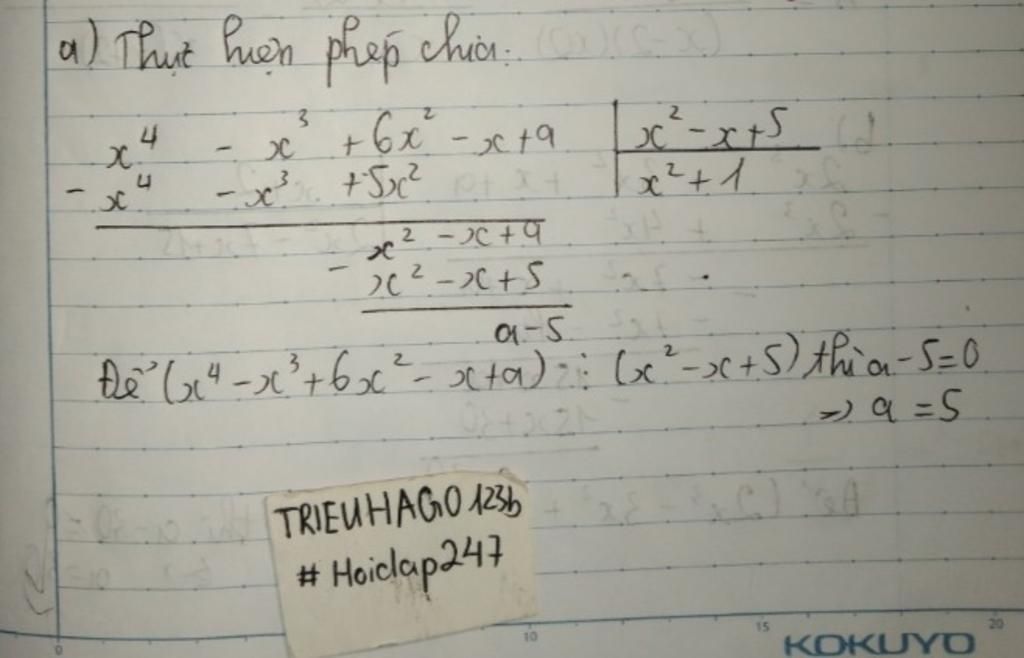 a) Thực hiện phép chia:
x⁴ - x³ + 6x² - x + a | x² - x + 5
- x⁴ - x³ + 5x² | x² + 1
x² - x + a
- x² - x + 5
a - 5
Để (x⁴ - x³ + 6x² - x + a) ⋮ (x² - x + 5) thì a - 5 = 0
=> a = 5
TRIEUHAGO123b
# Hoidap247
0 10 15 20
KOKUYO